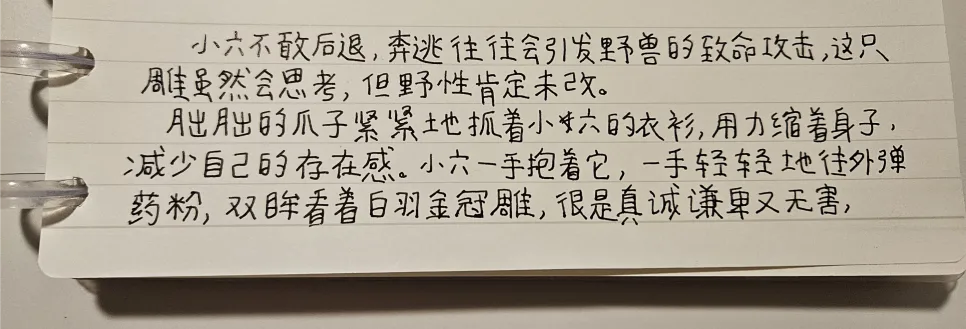 小六不敢后退,奔逃往往会引发野兽的致命攻击,这只
雕虽然会思考,但野性肯定未改。
朏朏的爪子紧紧地抓着小六的衣衫,用力缩着身子,
减少自己的存在感。小六一手抱着它,一手轻轻地往外弹
药粉,双眸看着白羽金冠雕,很是真诚谦卑又无害,